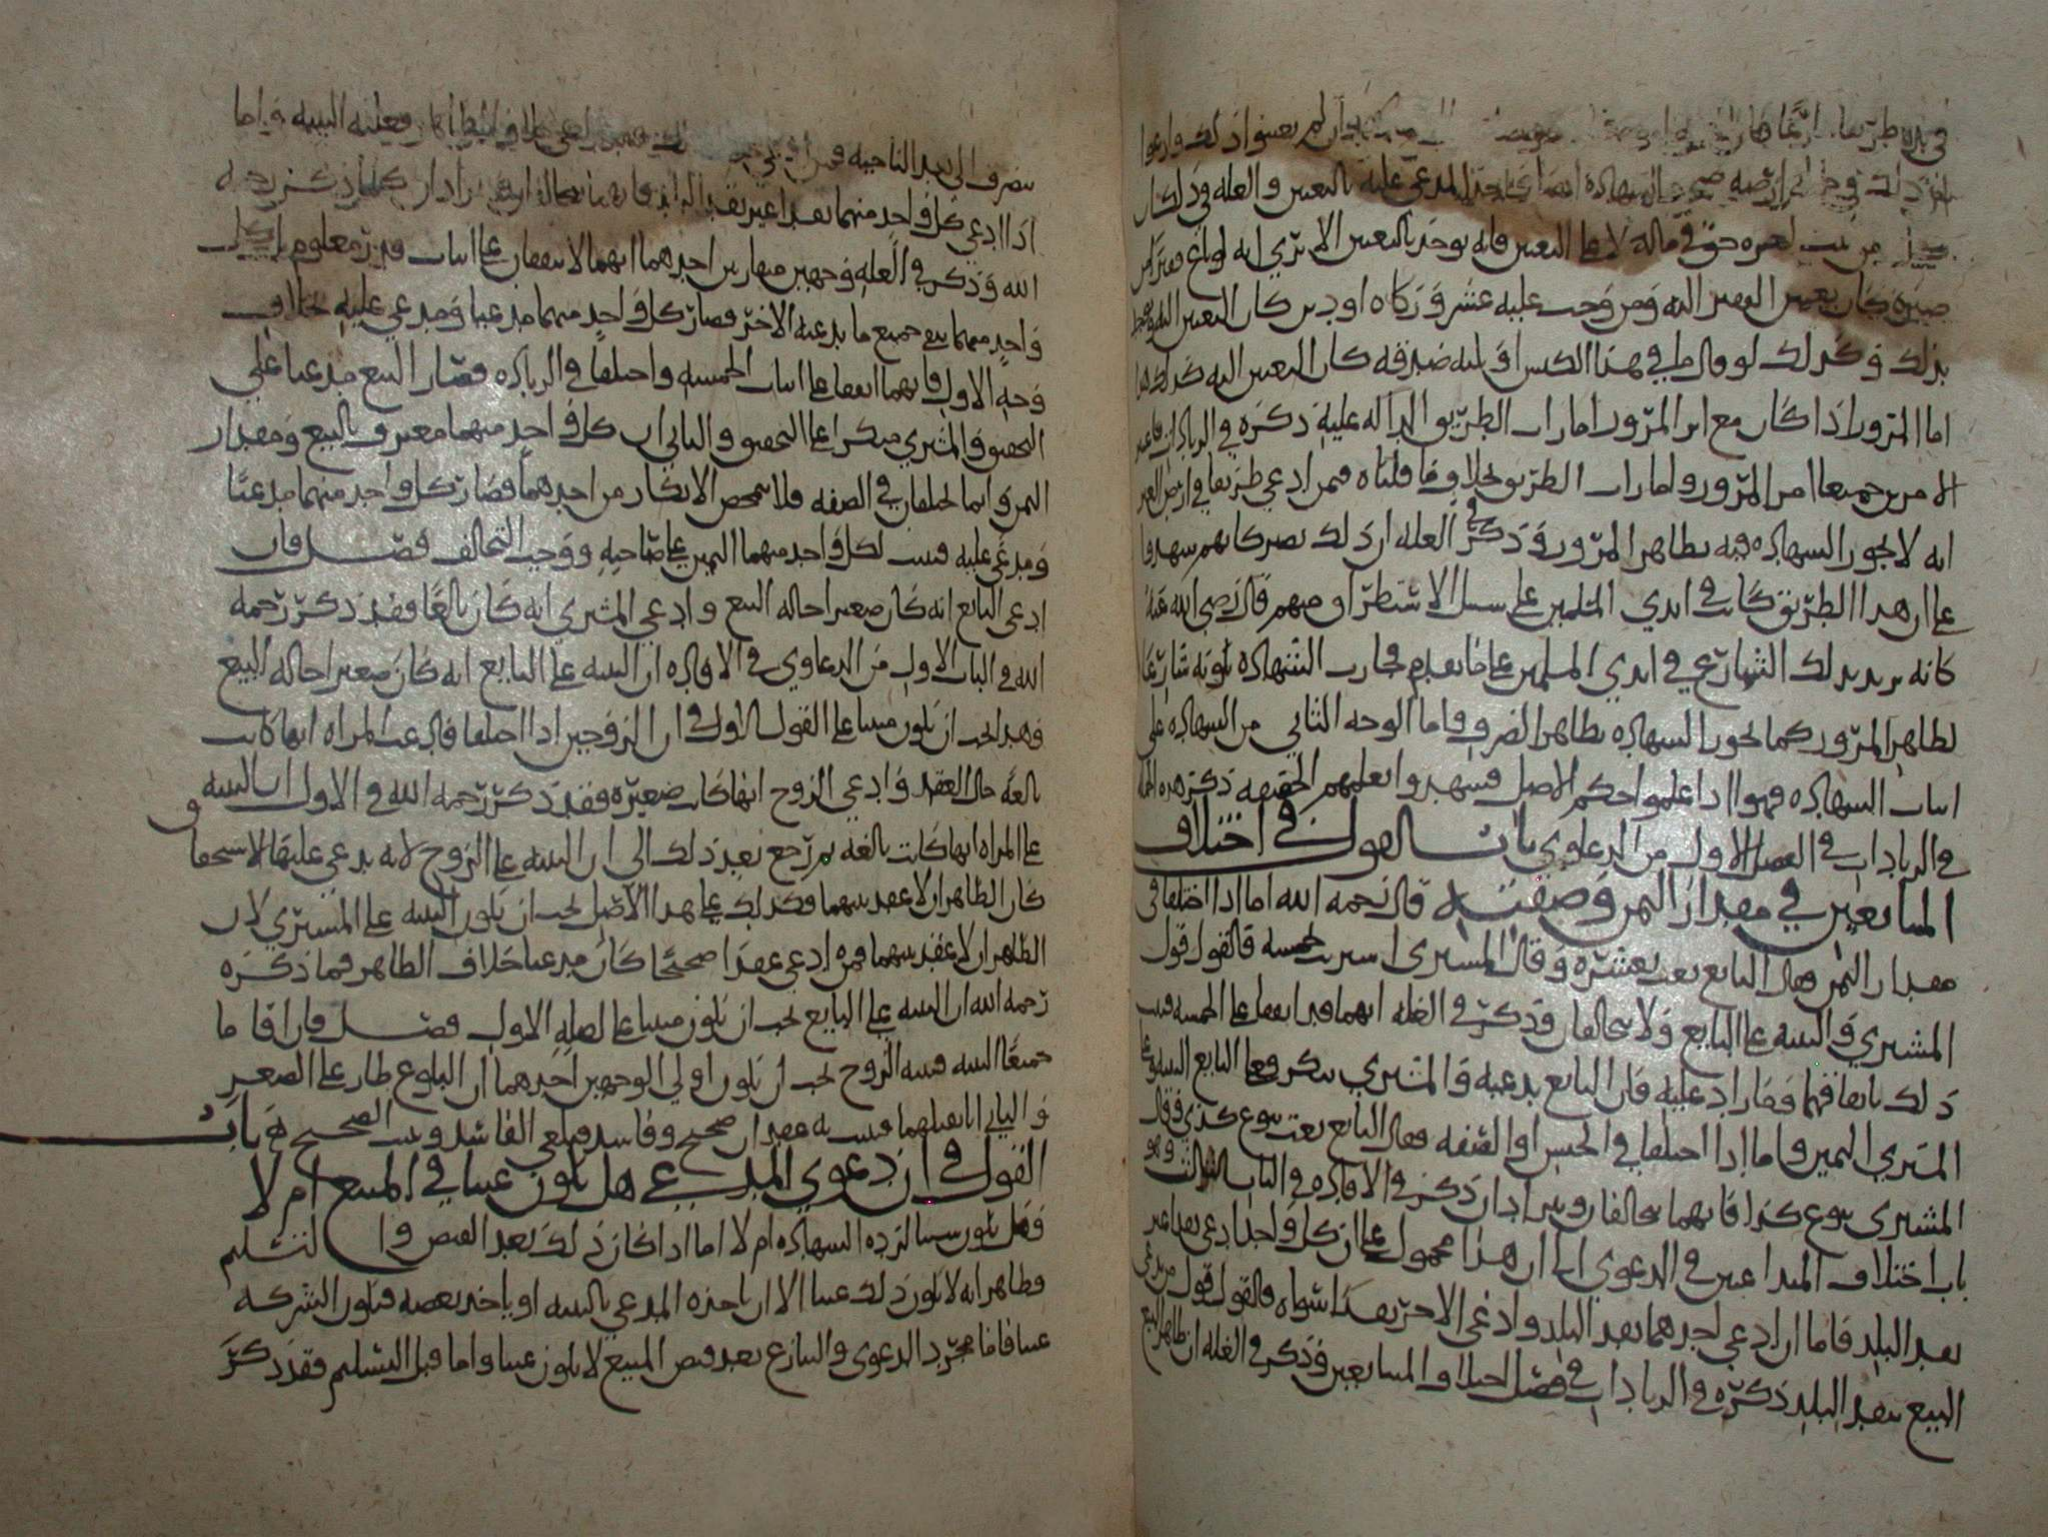 في يده طريقا
بالتعيين والعله في ذلك ان
لغيره حق في ماله لا على التعيين فانه يوخذ بالتعيين الا ترى انه لو باع قفيزا من
صبره كان تعيين القفيز اليه ومن وجب عليه عشر وزكاه او دين كان التعيين اليه
بذلك وكذلك لو قال ما في هذا الكيس او لبنه صدقه كان التعيين اليه كذلك هذا
اما المرور اذا كان مع اثر المرور امارات الطريق الداله عليه ذكره في الزيادات فاعتبر
الامرين جميعا امر المرور وامارات الطريق بخلاف ما قلناه فيمن ادعى طريقا في ارض الغير
انه لا يجوز الشهاده فيه بظاهر المرور وذكر في العله ان ذلك يصير كانهم شهدوا
على ان هذا الطريق كانت في ايدي المسلمين على سبيل الاستطراق منهم قال رضي الله عنه
كانه يريد بذلك الشارع في ايدي المسلمين على ما تقدم فجازت الشهاده بكونه شارعا
لظاهر المرور كما يجوز الشهاده بظاهر التصرف فاما الوجه الثاني من الشهاده على
اثبات الشهاده فهو اذا علموا حكم الاصل فشهدوا بعلمهم الحقيقه ذكر هذه الجمله
في الزيادات في الفصل الاول من الدعاوي باب القول في اختلاف
المتبايعين في مقدار الثمن وصفته قال رحمه الله اما اذا اختلفا في
مقدار الثمن فقال البايع بعت بعشره وقال المشتري اشتريت بخمسه فالقول قول
المشتري والبينه على البايع ولا يتحالفان وذكر في العله انهما قد اتفقا على الخمسه فثبت
ذلك باتفاقهما وما زاد عليه فان البايع يدعيه والمشتري ينكر فعلى البايع البينه وعلى
المشتري اليمين واما اذا اختلفا في الجنس او الصفه فقال البايع بعت بنوع كذي وقال
المشتري بنوع كذا فانهما يتحالفان ويترادان ذكره في الافاده في الباب الثالث وهو
باب اختلاف المتداعيين في الدعوي الا ان هذا محمول على ان كل واحد ادعى نقدا غير
نقد البلد فاما ان ادعى احدهما نقد البلد وادعى الاخر نقدا سواه فالقول قول من يدعي
نقد البلد ذكره في الزيادات في فصل اختلاف المتبايعين وذكر في العله ان ظاهر البيع
ينصرف الى نقد الناحيه فمن ادعى خلاف الظاهر فعليه البينه واما
اذا ادعى كل واحد منهما نقدا غير نقد البلد فانهما يتحالفان ويترادان كما ذكره رحمه
الله وذكر في العله وجهين متقاربين احدهما انهما لا يتفقان على اثبات قدر معلوم لان كل
واحد منهما ينفي جميع ما يدعيه الاخر فصار كل واحد منهما مدعيا ومدعى عليه بخلاف
وجه الاول فانهما اتفقا على اثبات الخمسه واختلفا في الزياده فصار البايع مدعيا على
التحقيق والمشتري منكرا على التحقيق والثاني ان كل واحد منهما معترف بالبيع ومقدار
الثمن وانما يختلفان في الصفه فلا يتمحض الانكار من احدهما فصار كل واحد منهما مدعيا
ومدعى عليه فثبت لكل واحد منهما اليمين على صاحبه ووجب التحالف فصل فان
ادعى البايع انه كان صغيرا حاله البيع وادعى المشتري انه كان بالغا فقد ذكر رحمه
الله في الباب الاول من الدعاوي في الافاده ان البينه على البايع انه كان صغيرا حاله البيع
فهذا يجب ان يكون مبنيا على القول الاول في ان الزوجين اذا اختلفا فادعت المراه انها كانت
بالغه حال العقد وادعى الزوج انها كانت صغيره فقد ذكر رحمه الله في الاول ان البينه
على المراه انها كانت بالغه ثم رجع بعد ذلك الى ان البينه على الزوج لانه يدعي عليها الاستحقاق
كان الظاهر ان لا عقد بينهما فكذلك على هذا الاصل يجب ان يكون البينه على المشتري لان
الظاهر ان لا عقد بينهما فمن ادعى عقدا صحيحا كان مدعيا خلاف الظاهر فما ذكره
رحمه الله ان البينه على البايع يجب ان يكون مبنيا على اصله الاول فصل فان اقاما
جميعا البينه فبينه الزوج يجب ان يكون اولى لوجهين احدهما ان البلوغ طار على الصغر
والثاني انا نقبلهما فيثبت به عقدان صحيح وفاسد فيلغى الفاسد ويثبت الصحيح باب
القول في ان دعوي المدعي هل يكون عيبا في المبيع ام لا
وهل يكون سببا لرده الشهاده ام لا اما اذا كان ذلك بعد القبض والتسليم
فظاهر انه لا يكون ذلك عيبا الا ان ياخذه المدعي بالبينه او ياخذ بعضه فيكون الشركه
عيبا فاما مجرد الدعوى والتنازع بعد قبض المبيع لا يكون عيبا واما قبل التسليم فقد ذكر